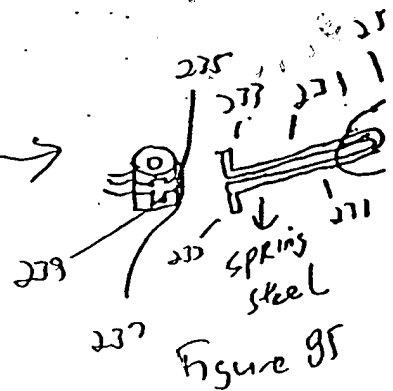 25
235
233 231
239
233
231
spring
steel
237
Figure 95